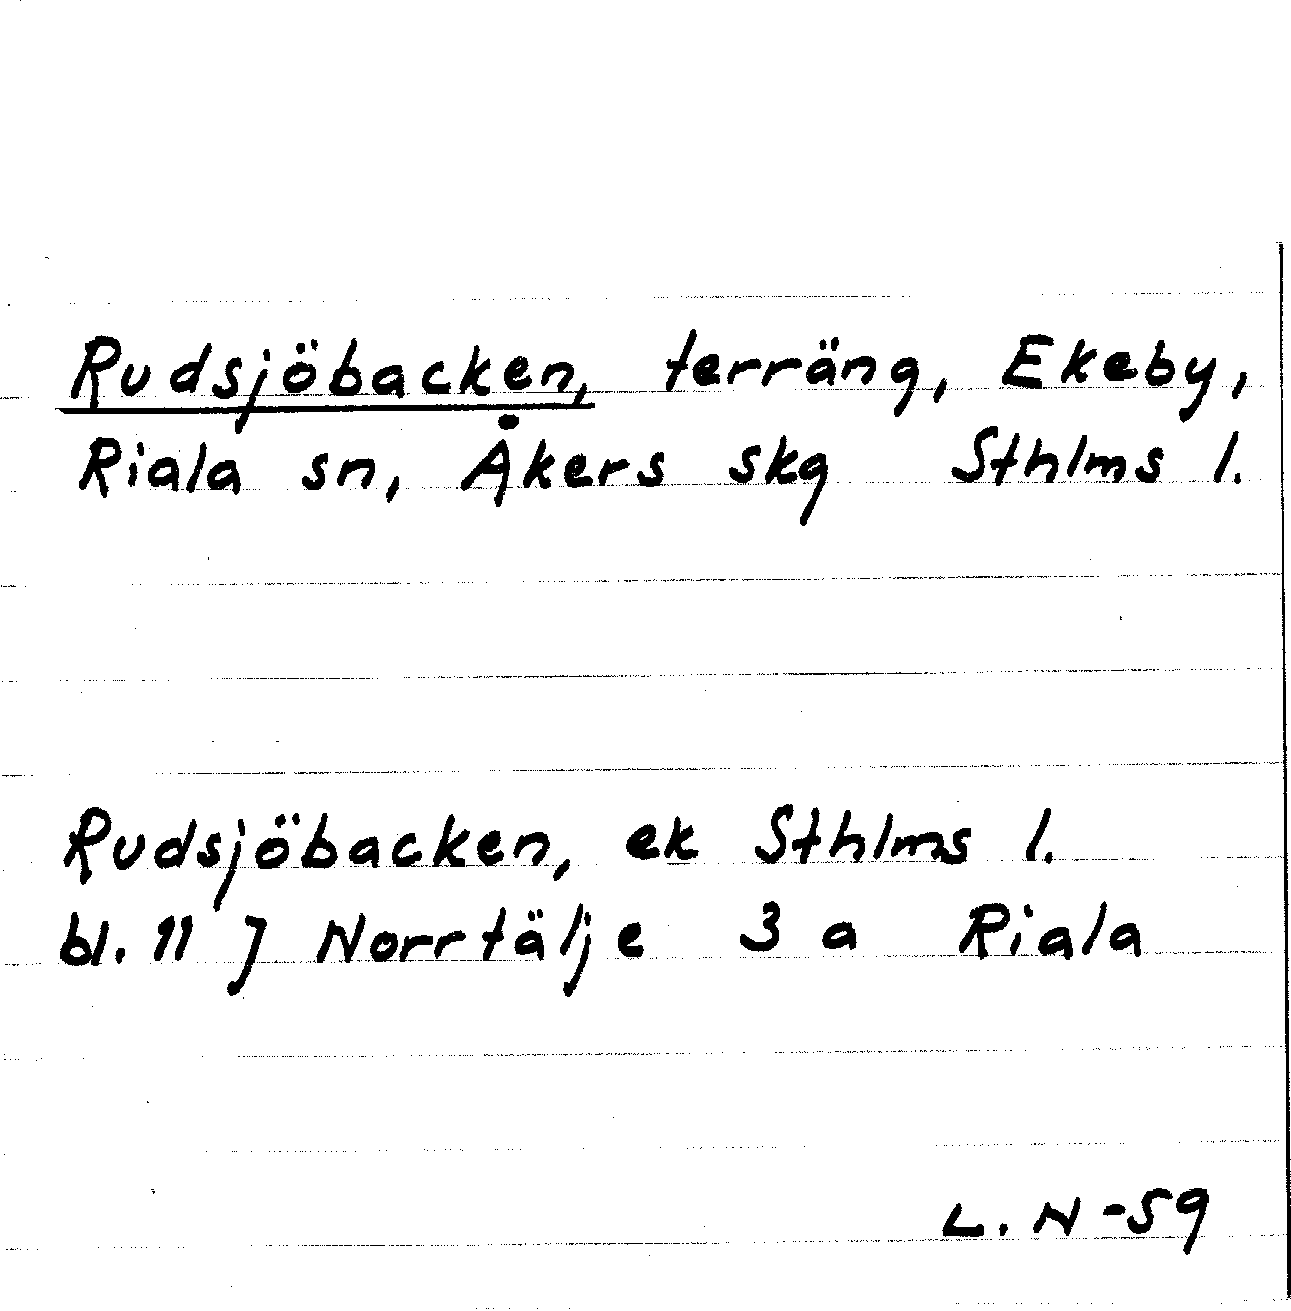 Rudsjöbacken, terräng, Ekeby,
Riala sn, Åkers skg Sthlms l.
Rudsjöbacken, ek Sthlms l.
bl. 11 J Norrtälje 3 a Riala
L. N -59